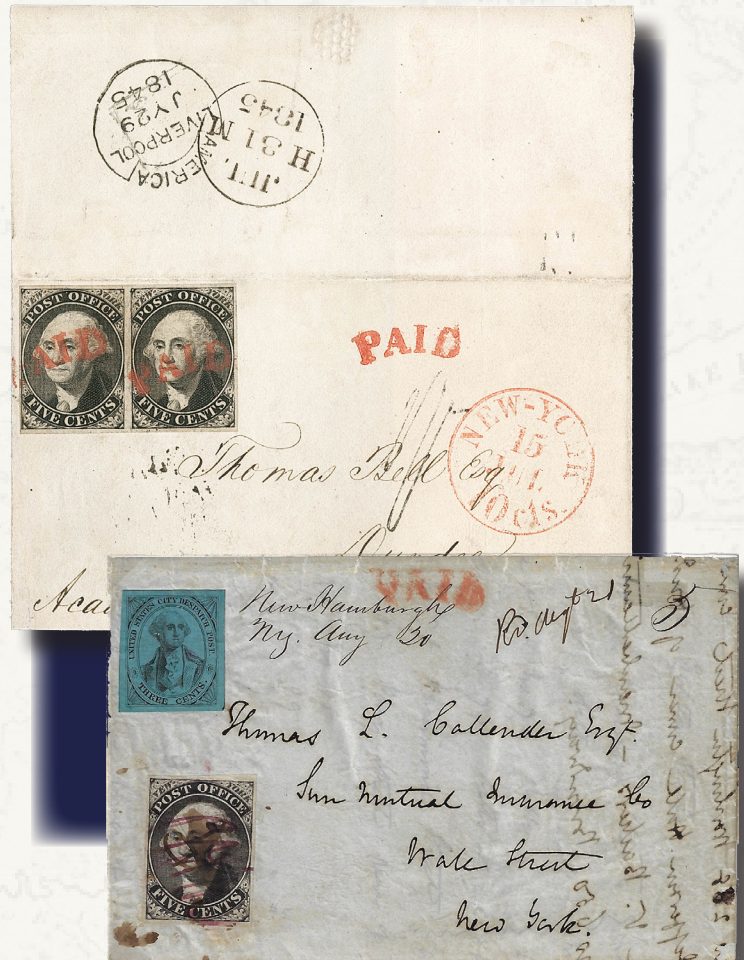 LIVERPOOL
AMERICA
JY 29
1845
JUL
H 31 M
1845
POST OFFICE
FIVE CENTS
PAID
POST OFFICE
FIVE CENTS
PAID
PAID
10
NEW-YORK
15
JUL.
10cts.
Thomas Bell Esq
Dundee
Aca
PAID
UNITED STATES CITY DESPATCH POST.
THREE CENTS.
New Hamburgh
Ny. Aug 20
5
Thomas L. Callender Esqr.
Sun Mutual Insurance Co
Wall Street
New York.
POST OFFICE
FIVE CENTS